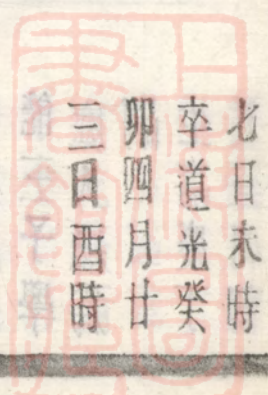 七日未時
卒道光癸
卯四月廿
三日酉時